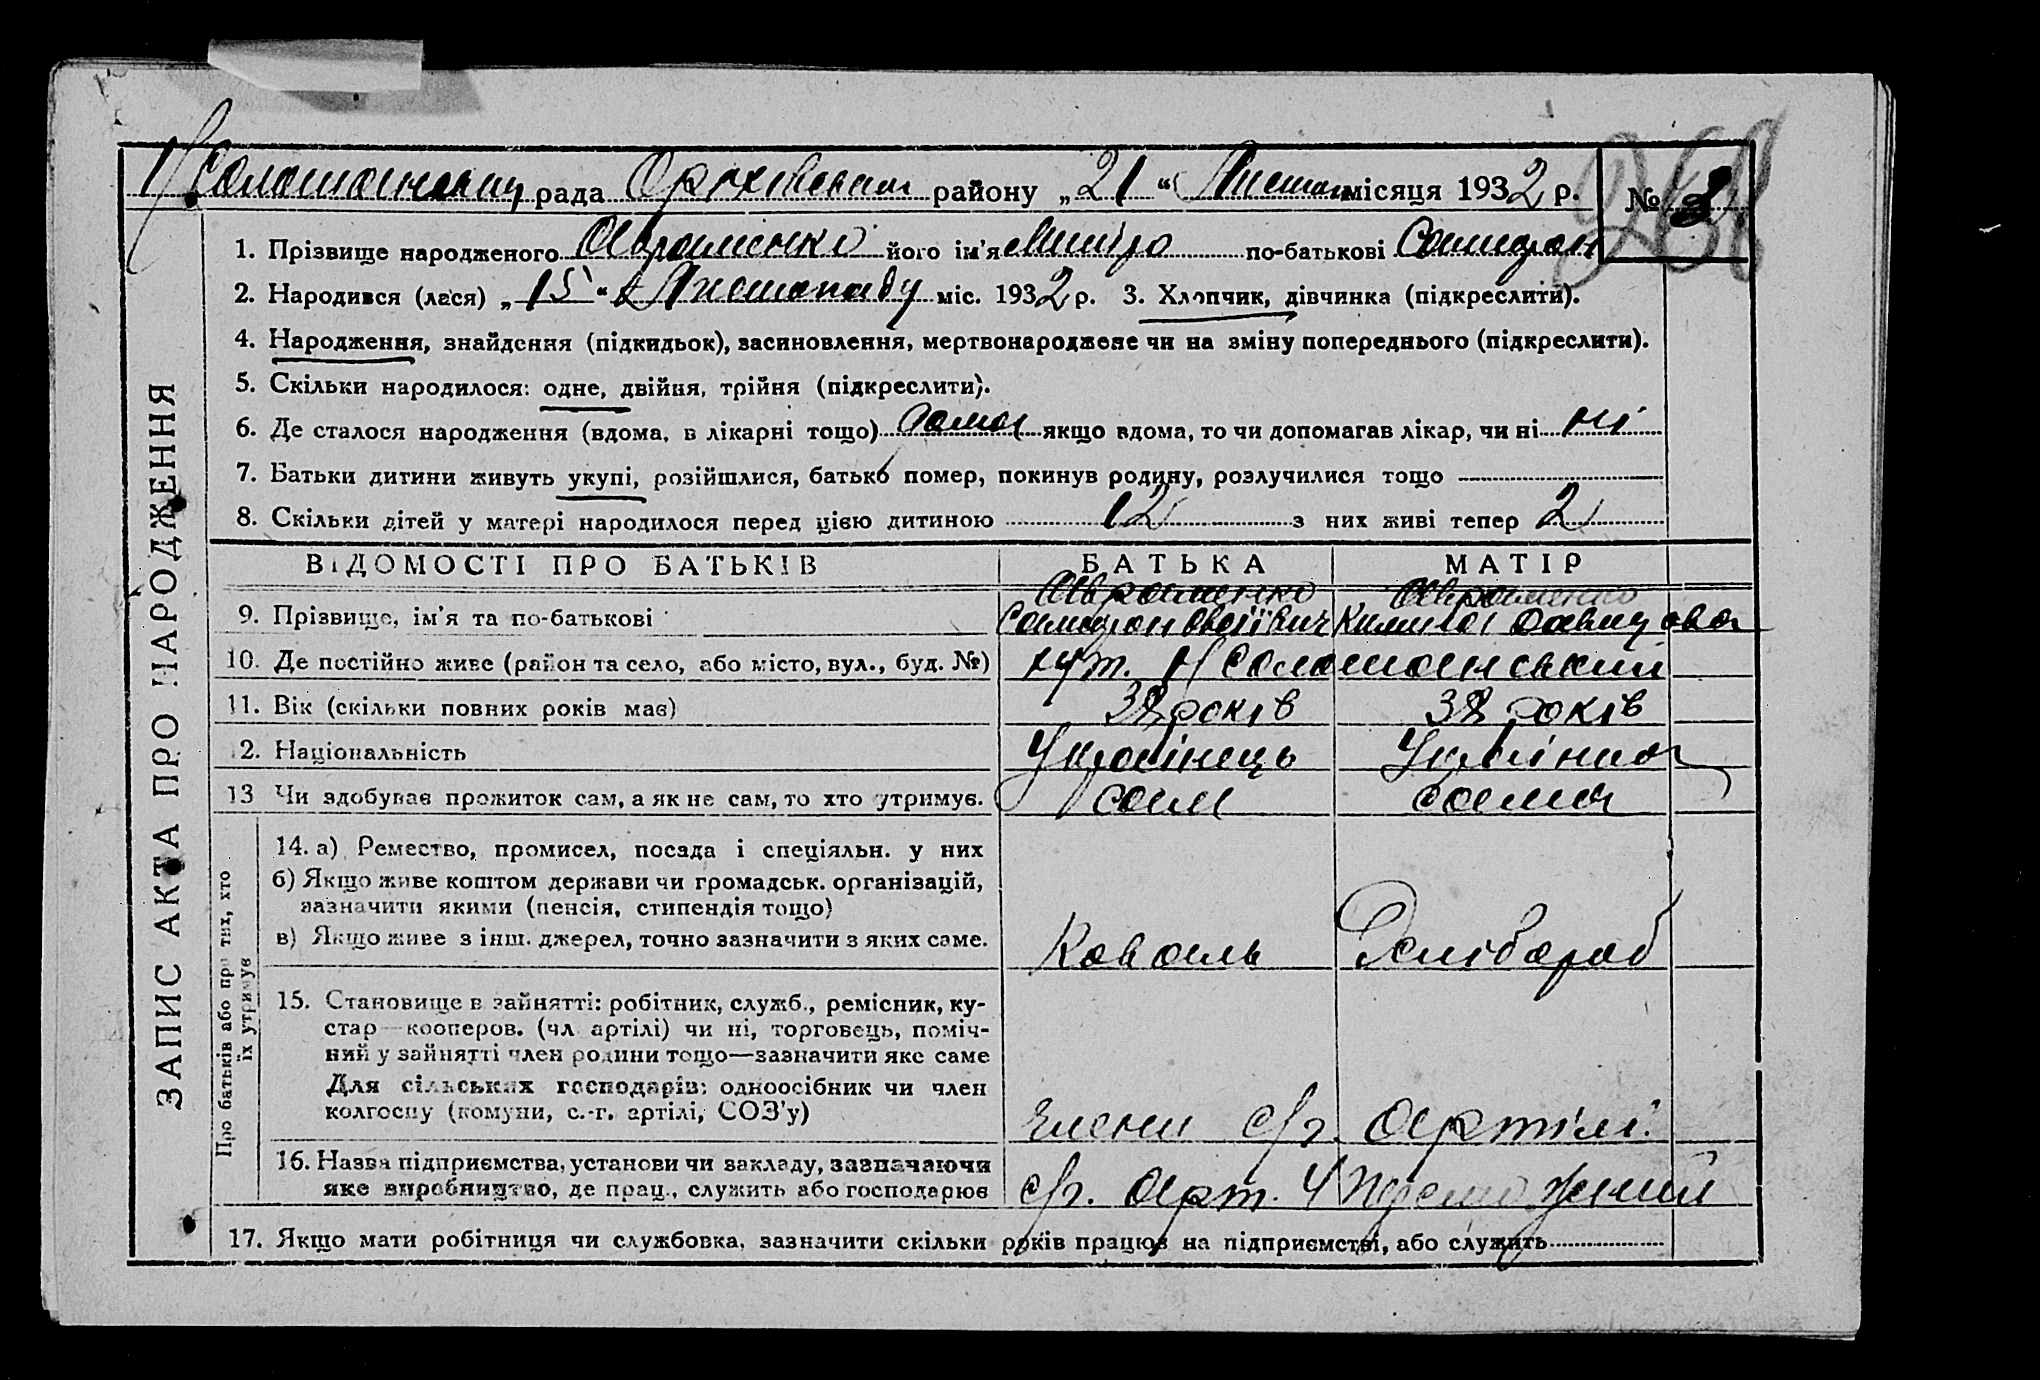 рада Оріхівського району „21“ Листоп місяця 1932 р. №
1. Прізвище народженого Авраменко його ім'я Митро по-батькові
2. Народився (лася) „15“ Листопаду міс. 1932 р. 3. Хлопчик, дівчинка (підкреслити).
4. Народження, знайдення (підкидьок), засиновлення, мертвонароджене чи на зміну попереднього (підкреслити).
5. Скільки народилося: одне, двійня, трійня (підкреслити).
6. Де сталося народження (вдома, в лікарні тощо) дома якщо вдома, то чи допомагав лікар, чи ні ні
7. Батьки дитини живуть укупі, розійшлися, батько помер, покинув родину, розлучилися тощо
8. Скільки дітей у матері народилося перед цією дитиною 12 з них живі тепер 2
ЗАПИС АКТА ПРО НАРОДЖЕННЯ
ВІДОМОСТІ ПРО БАТЬКІВ БАТЬКА МАТІР
Авраменко Авраменко
9. Прізвище, ім'я та по-батькові
10. Де постійно живе (район та село, або місто, вул., буд. №) хут. Н Соломанський
11. Вік (скільки повних років має) 38 років 38 років
12. Національність Українець Українка
13 Чи здобував прожиток сам, а як не сам, то хто утримує. сам сама
Про батьків або про тих, хто
їх утримує
14. а) Ремество, промисел, посада і спеціяльн. у них
б) Якщо живе коштом держави чи громадськ. організацій,
зазначити якими (пенсія, стипендія тощо)
в) Якщо живе з інш. джерел, точно зазначити з яких саме. Коваль Хлібороб
15. Становище в зайнятті: робітник, служб., ремісник, ку-
стар—кооперов. (чл артілі) чи ні, торговець, поміч-
ний у зайнятті член родини тощо—зазначити яке саме
Для сільських господарів: одноосібник чи член
колгоспу (комуни, с.-г. артілі, СОЗ'у) члени с/г. артілі
16. Назва підприємства, установи чи закладу, зазначаючи
яке виробництво, де прац., служить або господарює с/г. Арт.
17. Якщо мати робітниця чи службовка, зазначити скільки років працює на підприємстві, або служить